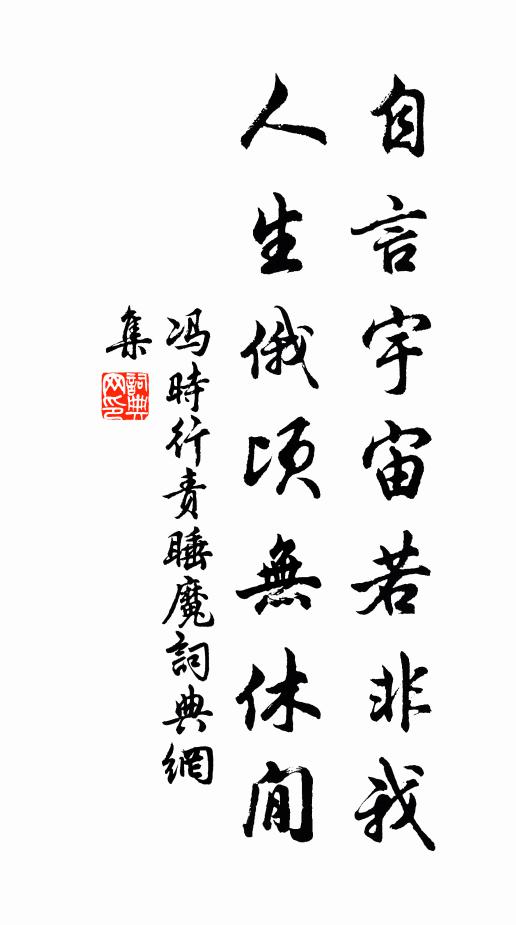 自言宇宙若非我
人生俄頃無休閒
冯時行責睡魔詞典網
集
詞典
网印